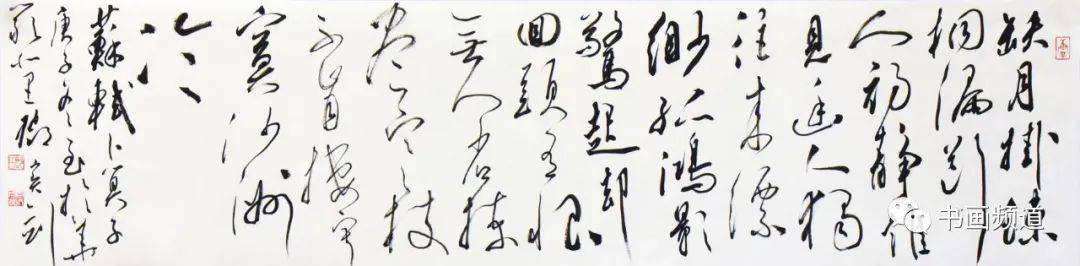 缺月掛疎
桐漏断
人初静谁
見幽人独
往来缥
缈孤鸿影
驚起却
回頭有恨
无人省拣
尽寒枝
不肯棲寂
寞沙洲
冷
蘇軾卜算子
庚子冬至於
书画频道